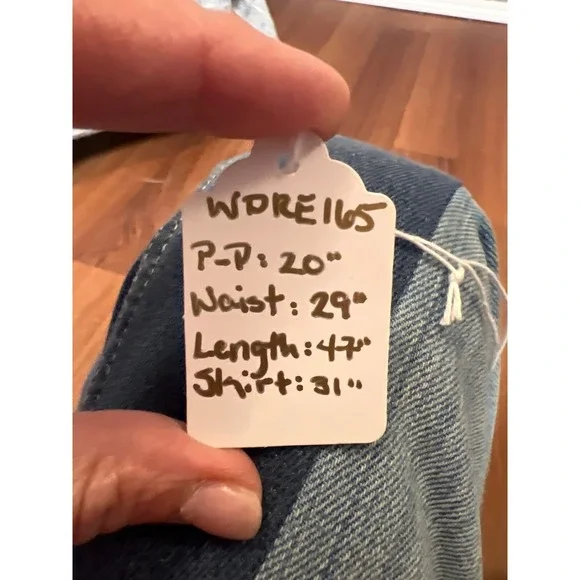 WDRE165
P-P: 20"
Waist: 29"
Length: 47"
Skirt: 31"